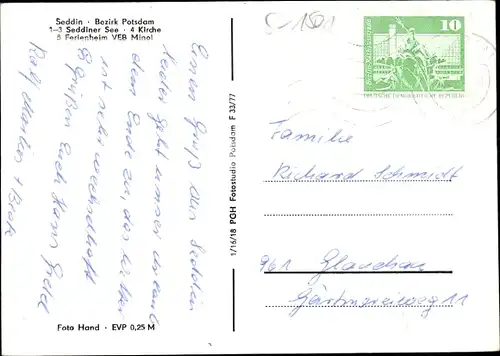 Seddin · Bezirk Potsdam
1-3 Seddiner See · 4 Kirche
5 Ferienheim VEB Minol
Einen Gruß aus Seddin
Leider geht unser Urlaub
dem Ende zu, das Wetter
ist sehr wechselhaft
Es grüßen Euch Hans
Rolf Martina + Beate
Foto Hand · EVP 0,25 M
1/16/18 PGH Fotostudio Potsdam F 33/77
10
DEUTSCHE DEMOKRATISCHE REPUBLIK
Familie
Richard Schmidt
961 Glauchau
11